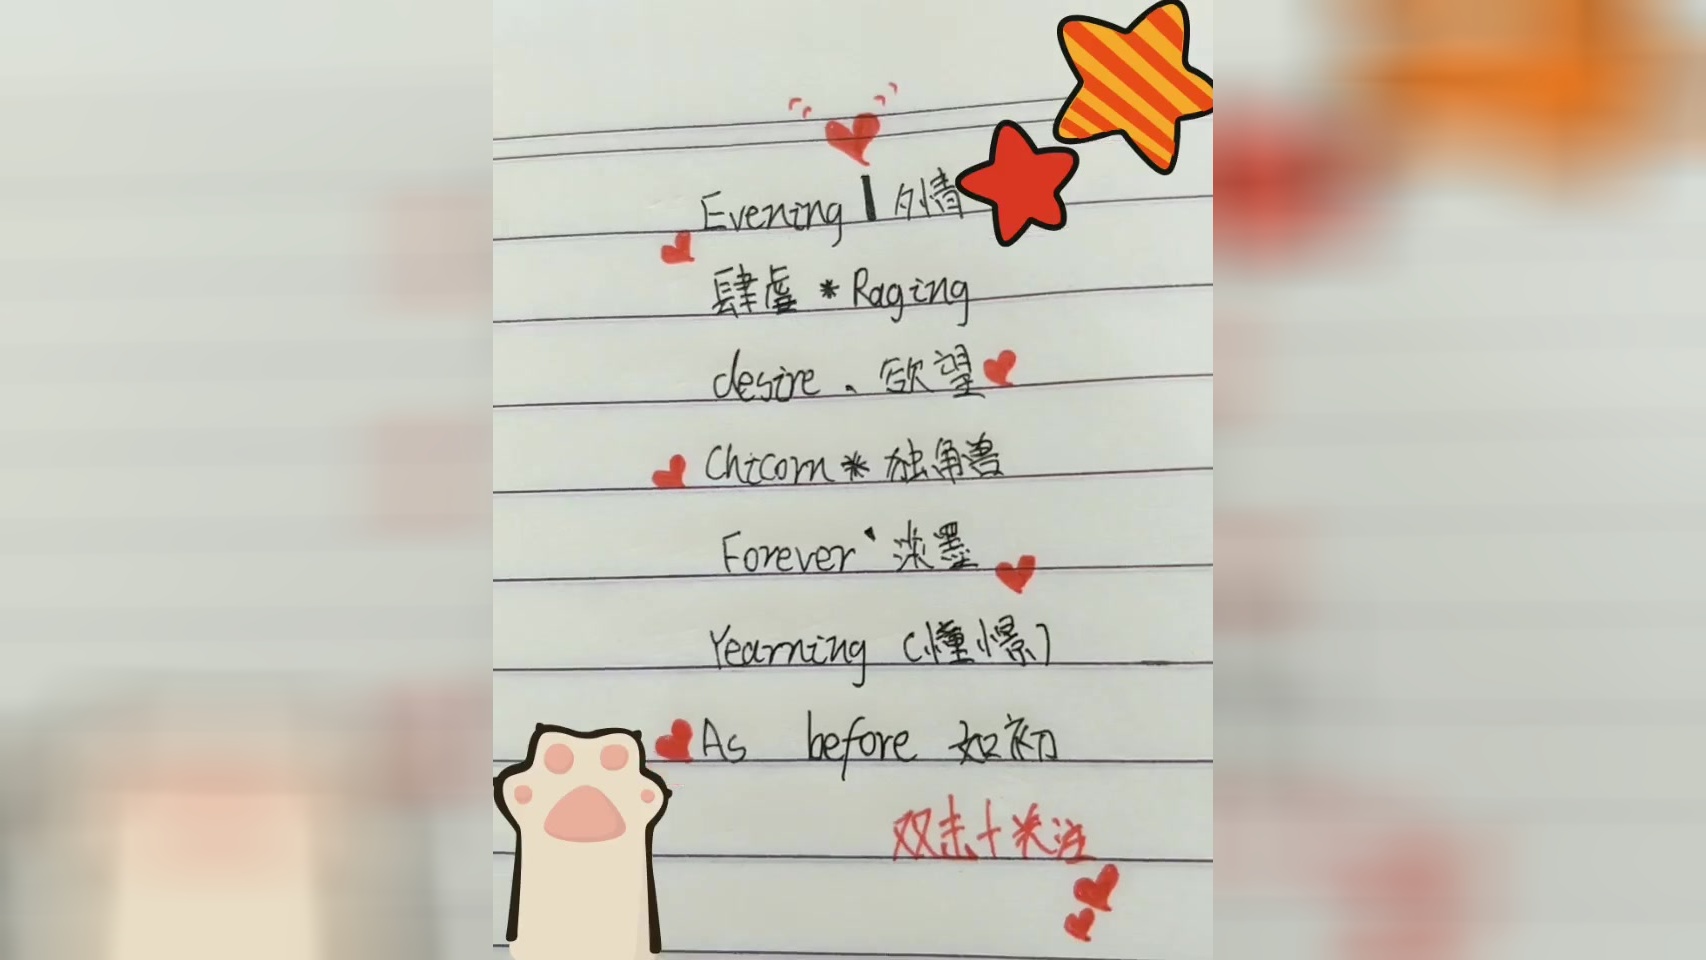 Evening 丨夕情
肆虐 * Raging
desire 、欲望
Chicorn * 独角兽
Forever 丶淡墨
Yearning (憧憬)
As before 如初
双击+关注